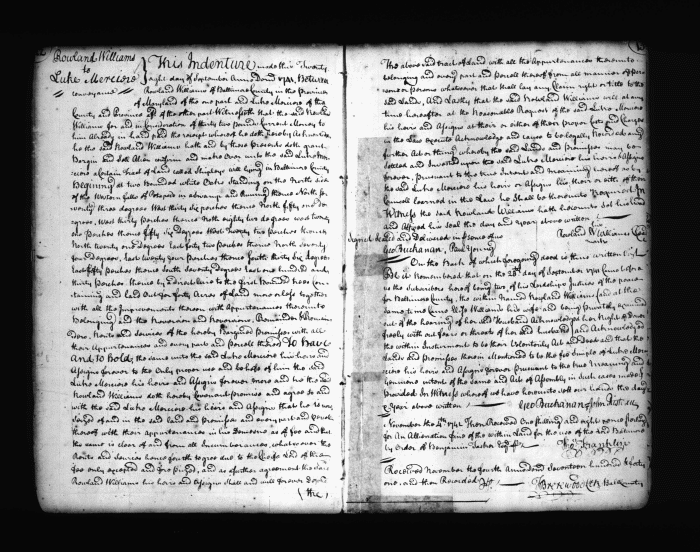 Rowland Williams
to
Luke Merciers
conveyance
This Indenture made this Twenty
eight day of September Anno Domi 1741 Between
Rowland Williams of Baltimore County in the Province
of Maryland of the one part and Luke Merciers of the
County and Province aforesd of the other part Witnesseth that the said Rowland
Williams for and in Consideration of thirty two pounds Current Money to
him Already in hand paid the receipt whereof he doth hereby Acknowledge
he the said Rowland Williams hath and by these presents doth grant
Bargain and Sell Alien enfeoff and make over unto the said Luke Merciers
a certain Tract of Land called Shipleys lying in Baltimore County
Beginning at two Bounded white Oaks Standing on the North side
of the Western falls of Patapsco and running thence North
seventy three degrees West thirty six perches thence North fifty one de-
grees West thirty perches thence North eighty two degrees West twenty
one perches thence fifty six Degrees West twenty two perches thence
North twenty one Degrees East forty two perches thence North Seventy
four Degrees East twenty four perches thence South thirty six degrees
East fifty perches thence South Seventy Degrees East one hundred and
thirty perches thence by a direct line to the first Bounded trees Con-
taining and laid out for forty Acres of Land more or less together
with all the Improvements thereon with Appurtenances thereunto
Belonging and the Reversion and Reversions Remainder & Remain-
ders, Rents and Services of the hereby granted premises with all
their Appurtenances and every part and parcell thereof To have
and to hold the same unto the said Luke Merciers his heirs and
Assigns forever to the Only proper use and behoof of him the said
Luke Merciers his heirs and Assigns forever more and he the said
Rowland Williams doth hereby Covenant promise and agree to and
with the said Luke Merciers his heirs and Assigns that he is now
seized of and in the said Land and premises and every part and parcell
thereof with their Appurtenances in fee Simple and
the same is clear of and from all Incumbrances whatsoever the
Rents and Services
only excepted and foreprized, and as a further agreement the said
Rowland Williams his heirs and Assigns shall and will forever
the
The above said tract of Land with all the Appurtenances thereunto
belonging and every part and parcell thereof from all manner of per-
sons or persons whatsoever that shall lay any Claim right or title to the
said Land, And Lastly that the said Rowland Williams will at any
time hereafter at the Reasonable Request of the said Luke Merciers
his heirs and Assigns at their or either of their proper Costs and Charges
in the Law Acknowledge and cause to be legally
further Act or thing whereby the said Land and premises may be
settled and Invested upon the said Luke Merciers his heirs and Assigns
forever, pursuant to the true Intent and Meaning hereof as by
the said Luke Merciers his heirs or Assigns his, their or either of their
Council learned in the Law he Shall be thereunto Required In
Witness the said Rowland Williams hath hereunto set his hand
and Affixed his Seal the day and year above written
Signed Sealed and Delivered in presence of us
Geo Buchanan, Paul Rowland Williams
On the Back of which foregoing deed is thus written
Be it Remembered that on the 28th day of September 1741 came before
us the subscribers here of being two of his Lordships Justices of the peace
for Baltimore County, the within Named Rowland Williams at the
same time came Wife of Williams his wife and being privately examined
out of the hearing of her said Husband Acknowledged her Right of Dower
freely with out fear or threats of her said husband and Acknowledged
the within Instrument to be their Voluntary Act and Deed and that the
Lands and premises therein Mentioned to be the fee Simple of Luke Mer-
ciers his heirs and Assigns forever pursuant to the true Meaning and
intent of the same and Act of Assembly in such cases made &
Provided In Witness whereof we have hereunto set our hands this day
& year above written Geo Buchanan John Risteau
November the 4th 1741 Then Received One Shilling and eight pence Sterling
for An Alienation fine of the within Land for the use of the said
by Order of Benjamin Tasker Esqr
Received November the fourth Annodom Seventeen hundred & forty
one, and then Recorded